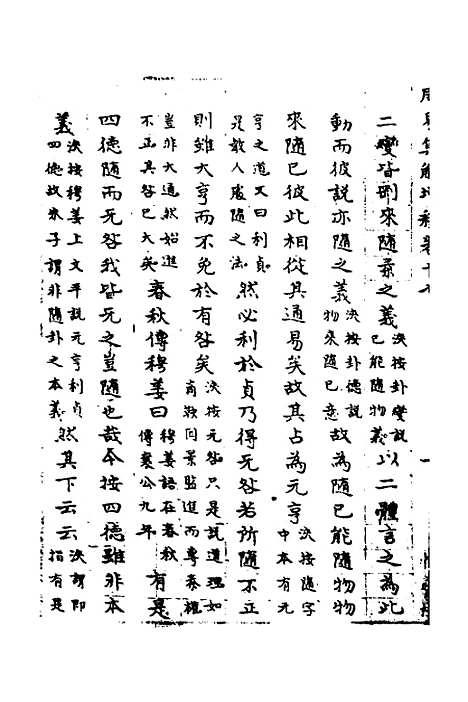 二變皆剛來隨柔之義決按卦變說己能隨物義以二體言之為此
動而彼說亦隨之義決按卦德說物來隨己意故為隨己能隨物物
來隨己彼此相從其通易矣故其占為元亨決按隨字中本有元
亨之道又曰利貞是教人處隨之法然必利於貞乃得无咎若所隨不正
則雖大亨而不免於有咎矣決按元咎只是說道理如商鞅因景監進而專秦權
豈非大通然始進不正其咎已大矣春秋傳穆姜曰穆姜語在春秋傳襄公九年有是
四德隨而无咎我皆无之豈隨也哉今按四德雖非本
義決按穆姜上文平說元亨利貞四德故朱子謂非隨卦之本義然其下云云決謂即指有是